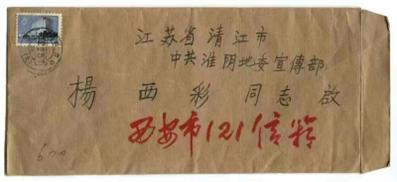 江苏省清江市
中共淮阴地委宣傳部
楊西彩同志啟
西安市121信箱
600